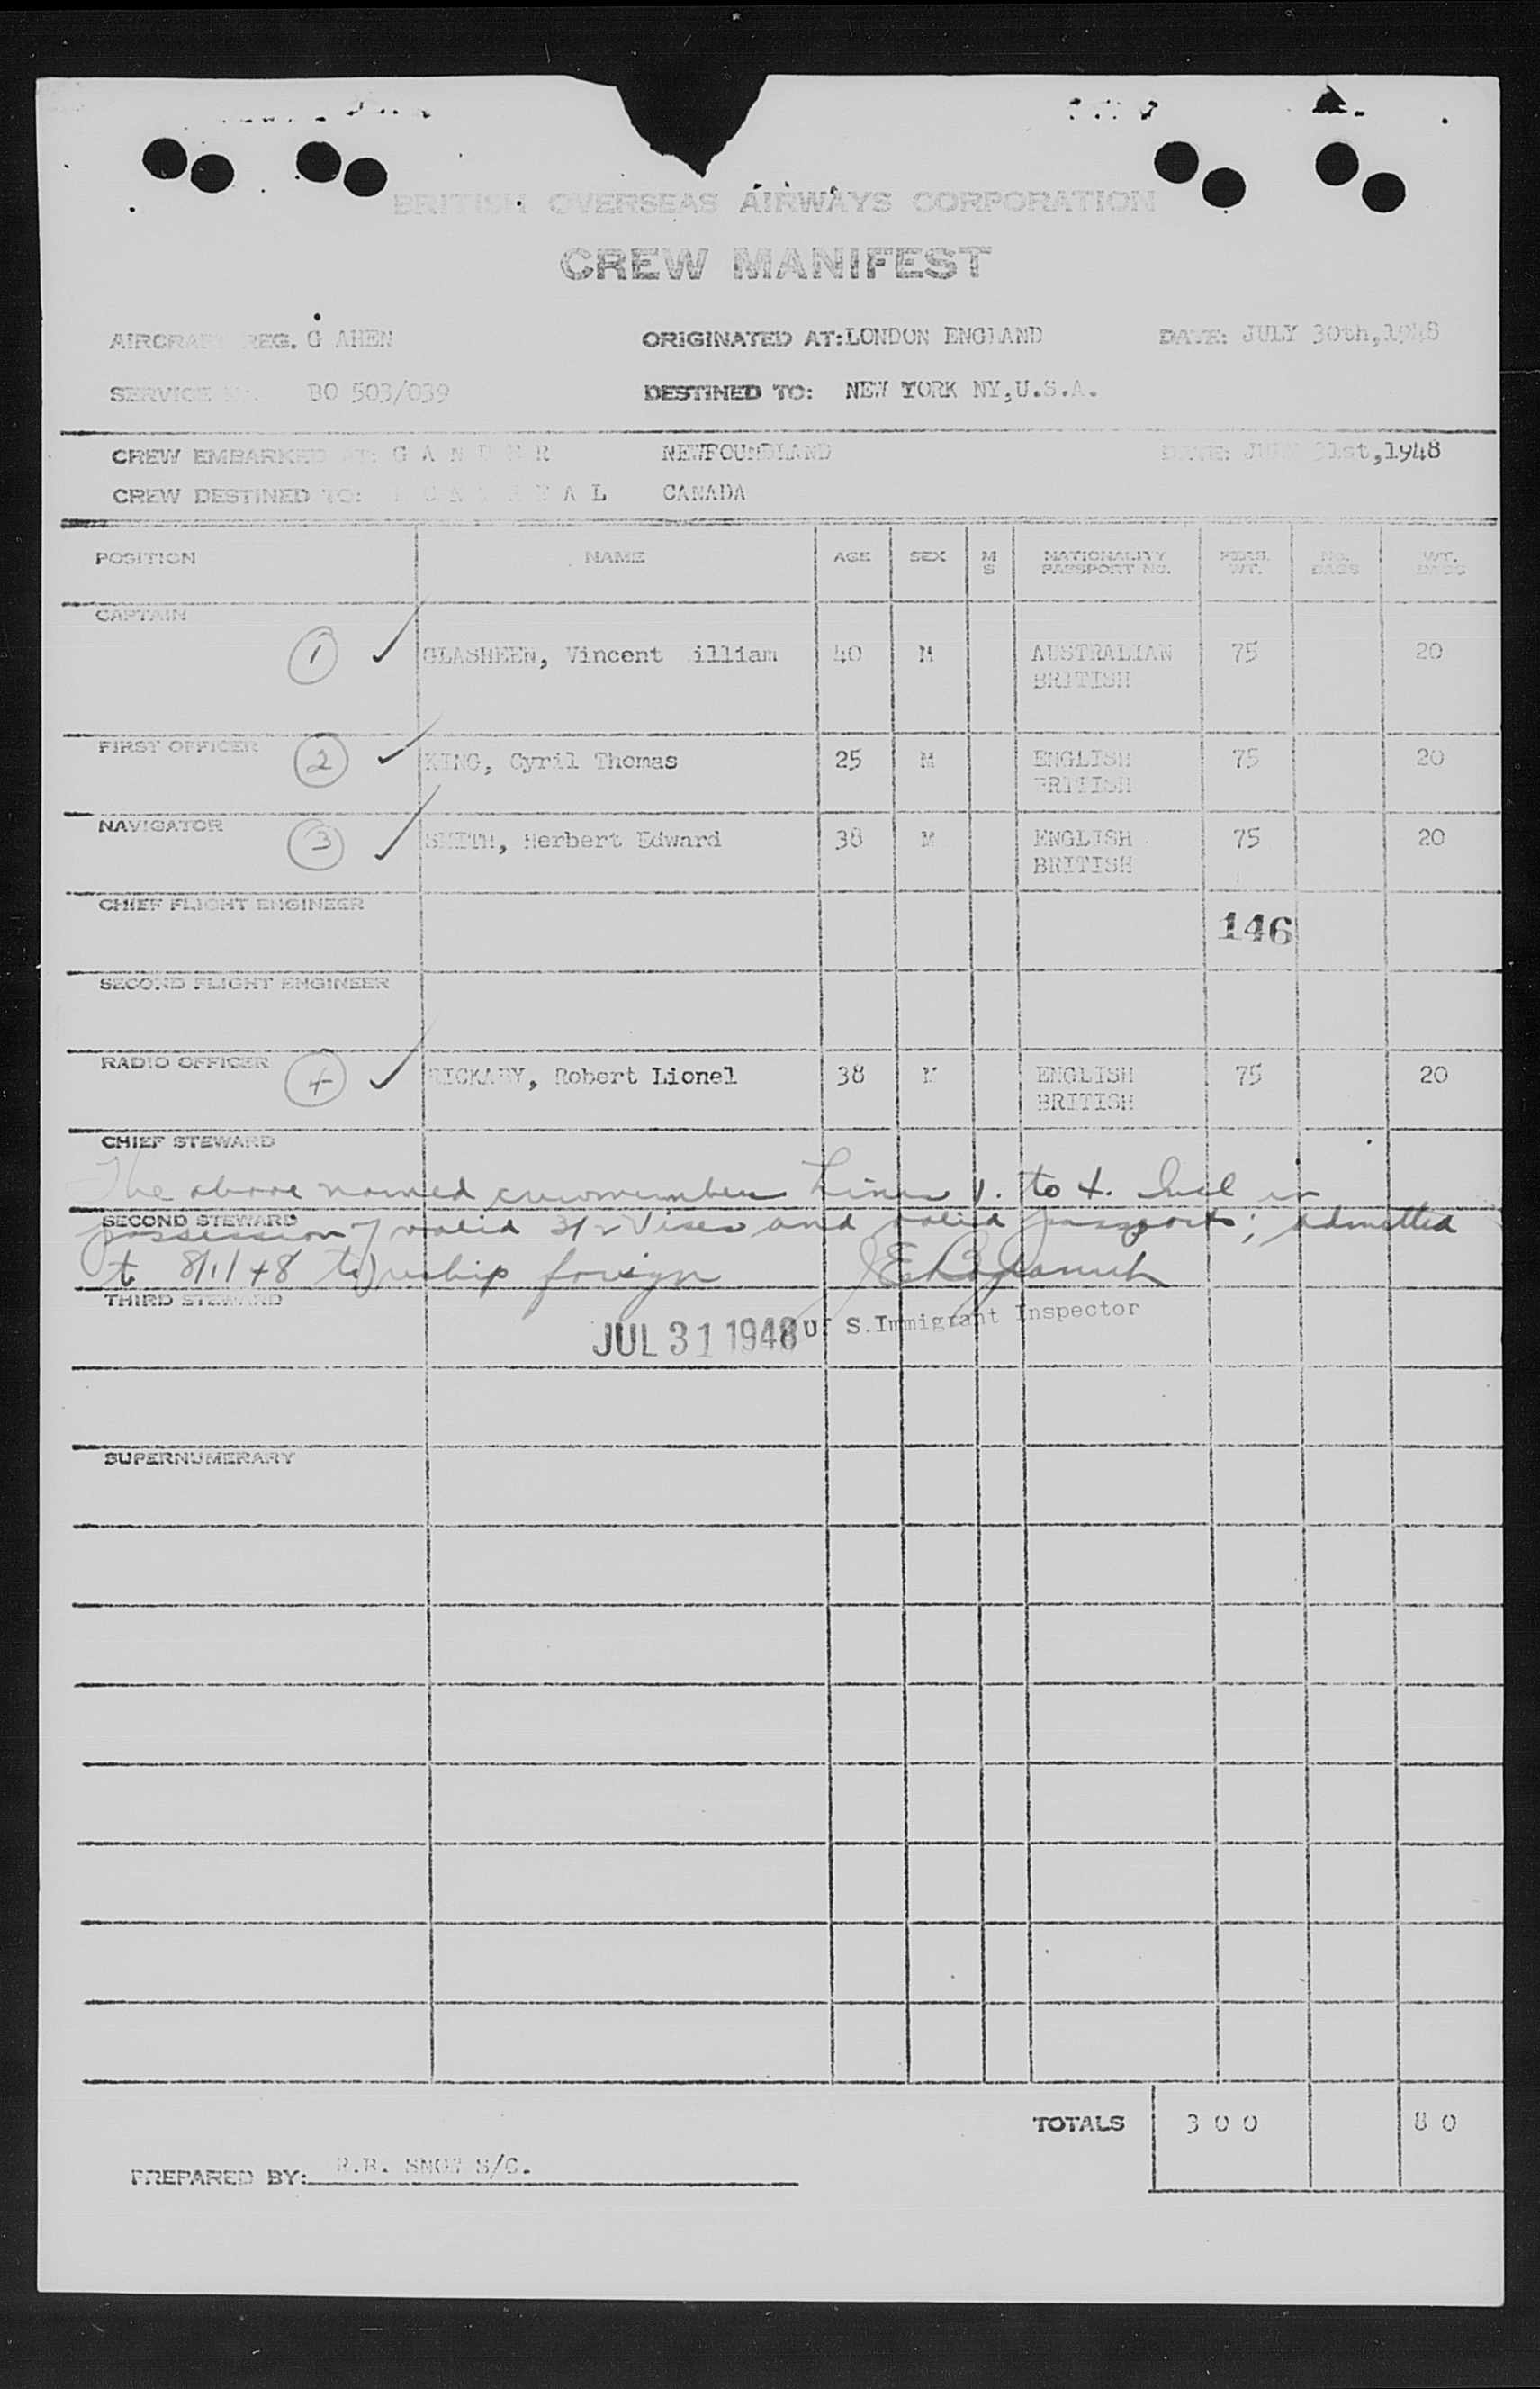 BRITISH OVERSEAS AIRWAYS CORPORATION
CREW MANIFEST
AIRCRAFT REG. G AHEN ORIGINATED AT: LONDON ENGLAND DATE: JULY 30th, 1948
SERVICE BO 503/039 DESTINED TO: NEW YORK NY, U.S.A.
CREW EMBARKED AT: G A N D E R NEWFOUNDLAND DATE: 31st, 1948
CREW DESTINED TO: CANADA
POSITION NAME AGE SEX M S NATIONALITY PASSPORT NO. PERS. WT. NO. BAGS WT. BAGS
CAPTAIN
1 GLASHEEN, Vincent illiam 40 M AUSTRALIAN 75 20
BRITISH
FIRST OFFICER
2 KING, Cyril Thomas 25 M ENGLISH 75 20
BRITISH
NAVIGATOR
3 SMITH, Herbert Edward 38 M ENGLISH 75 20
BRITISH
CHIEF FLIGHT ENGINEER
146
SECOND FLIGHT ENGINEER
RADIO OFFICER
4 RICKABY, Robert Lionel 38 M ENGLISH 75 20
BRITISH
CHIEF STEWARD
The above named crewmember Lines 1. to 4. Incl in
SECOND STEWARD
possession of valid 3/2 Visas and valid passports; admitted
to 8/1/48 to reship foreign
THIRD STEWARD
JUL 31 1948 U S. Immigrant Inspector
SUPERNUMERARY
TOTALS 3 0 0 8 0
PREPARED BY: R.B. SNOW S/C.